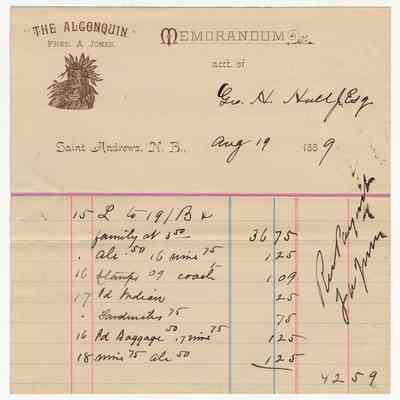 "THE ALGONQUIN"
FRED. A. JONES.
MEMORANDUM
acct. of
Geo. H. Esq
Saint Andrews, N. B., Aug 19 1889
15 L to 19/B &
family at 3 50 36 75
" Ale 50 16 wine 75 1 25
16 Stamps 09 coach 1 09
17 Pd Indian 25
" Sandwiches 75 75
16 Pd Baggage 50 17 wine 75 1 25
18 wine 75 ale 50 1 25
42 59
Rec Payment